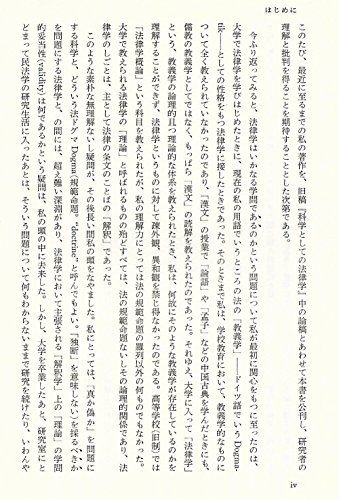 はじめに
このたび、最近に至るまでの私の著作を、旧稿『科学としての法律学』中の論稿とあわせて本書を公刊し、研究者の
理解と批判を得ることを期待することとした次第である。
今ふり返ってみると、法律学はいかなる学問であるのかという問題について私が最初に関心をもつに至ったのは、
大学で法律学を学びはじめたときに、現在の私の用語でいうところの法の「教義学」――ドイツ語でいう Dogma-
tik――としての性格をもつ法律学に接したときであった。そのときまで私は、学校教育において、教義学的なものに
ついて全く教えられていなかったのであり、「漢文」の授業で『論語』や『孟子』などの中国古典を学んだときにも、
儒教の教義学としてではなく、もっぱら「漢文」の読解を教えられたのであった。それゆえ、大学に入って「法律学」
という、教義学の論理的且つ理論的な体系を教えられたとき、私は、何故にそのような教義学が存在しているのかを
理解することができず、法律学というものに対して疎外観、異和観を禁じ得なかったのである。高等学校(旧制)では
「法律学概論」という科目を教えられたが、私の理解力にとっては法の規範命題の羅列以外の何ものでもなかった。
大学で教えられる法律学の「理論」と呼ばれるものの殆どすべては、法の規範命題ないしその論理的関係であり、法
律学のしごとは、主として法律の条文のことばの「解釈」であった。
このような素朴な無理解ないし疑問が、その後長い間私の頭をなやました。私にとっては、「真か偽か」を問題に
する科学と、どういう法ドグマ Dogma(規範命題。"doctrine" と呼んでもよい。「独断」を意味しない)を採るべきか
を問題にする法律学と、の間には、超え難い深淵があり、法律学において主張される「解釈学」上の「理論」の学問
的妥当性(validity)は何であるかという疑問は、私の頭の中に去来した。しかし、大学を卒業したあと、研究室にと
どまって民法学の研究生活に入ったあとは、そういう問題について何もわからないままで研究を続けたり、いわんや
iv